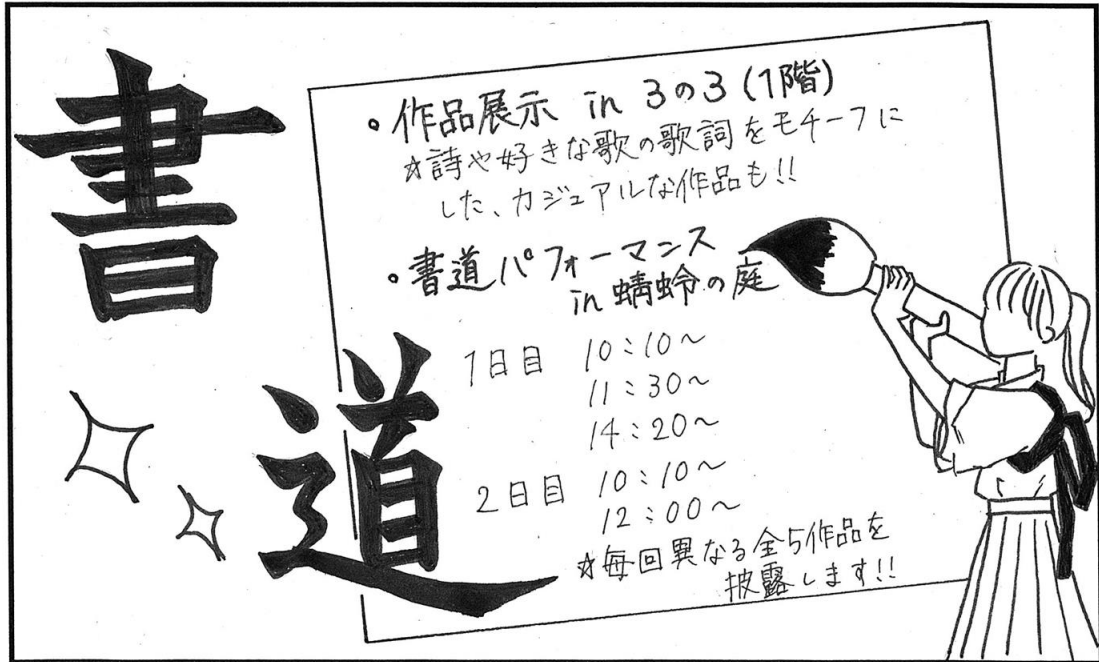 書道
・作品展示 in 3の3(1階)
☆詩や好きな歌の歌詞をモチーフに
した、カジュアルな作品も!!
・書道パフォーマンス
in 蜻蛉の庭
1日目 10:10~
11:30~
14:20~
2日目 10:10~
12:00~
☆毎回異なる全5作品を
披露します!!